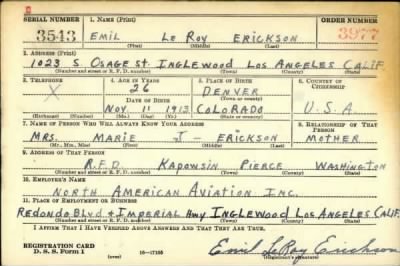 SERIAL NUMBER 1. NAME (Print) ORDER NUMBER
3543 EMIL LE ROY ERICKSON 3977
(First) (Middle) (Last)
2. ADDRESS (Print)
1023 S OSAGE ST. INGLEWOOD LOS ANGELES CALIF.
(Number and street or R. F. D. number) (Town) (County) (State)
3. TELEPHONE 4. AGE IN YEARS 5. PLACE OF BIRTH 6. COUNTRY OF CITIZENSHIP
X 26 DENVER
DATE OF BIRTH (Town or county)
NOV. 11 1913 COLORADO U.S.A.
(Exchange) (Number) (Mo.) (Day) (Yr.) (State or country)
7. NAME OF PERSON WHO WILL ALWAYS KNOW YOUR ADDRESS 8. RELATIONSHIP OF THAT PERSON
MRS. MARIE J - ERICKSON MOTHER
(Mr., Mrs., Miss) (First) (Middle) (Last)
9. ADDRESS OF THAT PERSON
R.F.D. KAPOWSIN PIERCE WASHINGTON
(Number and street or R. F. D. number) (Town) (County) (State)
10. EMPLOYER'S NAME
NORTH AMERICAN AVIATION INC.
11. PLACE OF EMPLOYMENT OR BUSINESS
REDONDO BLVD & IMPERIAL HWY INGLEWOOD LOS ANGELES CALIF.
(Number and street or R. F. D. number) (Town) (County) (State)
I AFFIRM THAT I HAVE VERIFIED ABOVE ANSWERS AND THAT THEY ARE TRUE.
REGISTRATION CARD
D. S. S. Form 1 (over) 16—17105 Emil LeRoy Erickson
(Registrant's signature)